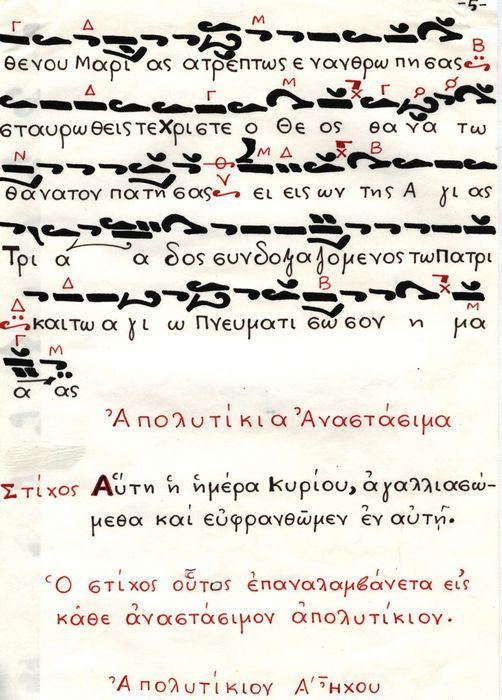 -5-
θενου Μαρι ας ατρεπτως ε νανθρω πησας
σταυρωθεις τε Χριστε ο Θε ος θανα τω
θανατον πατη σας ει εις ων της Α γι ας
Τρι α α δος συνδοξαζομενος τω Πατρι
και τω α γι ω Πνευματι σωσον η μα
α ας
Ἀπολυτίκια Ἀναστάσιμα
Στίχος Αὕτη ἡ ἡμέρα Κυρίου, ἀγαλλιασώ-
μεθα καί εὐφρανθῶμεν ἐν αὐτῇ.
Ὁ στίχος οὗτος ἐπαναλαμβάνετα εἰς
κάθε ἀναστάσιμον ἀπολυτίκιον.
Ἀπολυτίκιον Α' Ἤχου